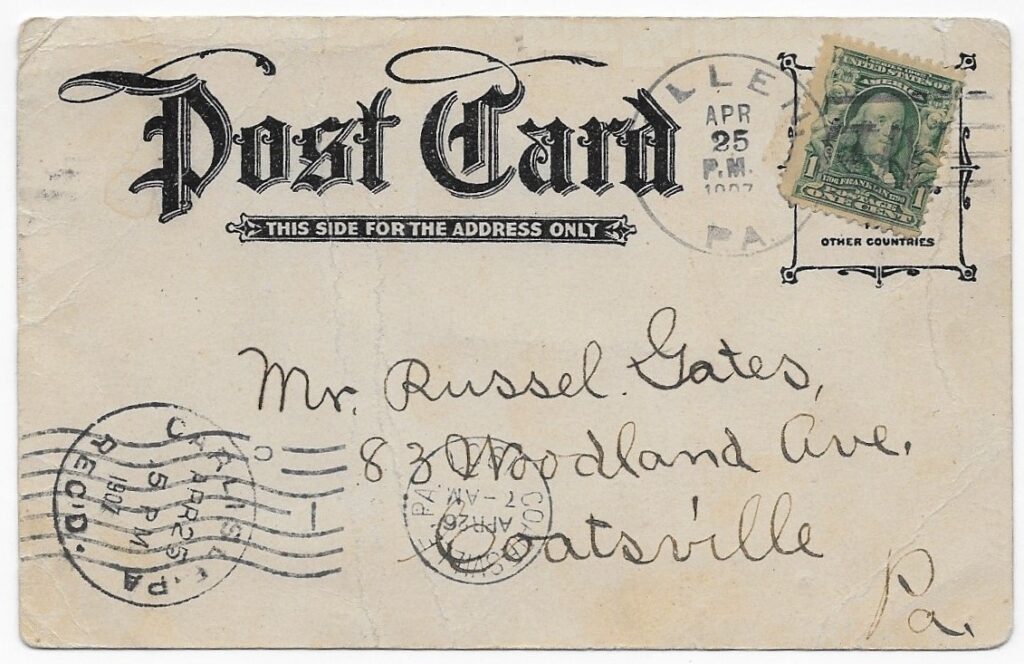 Post Card
THIS SIDE FOR THE ADDRESS ONLY
APR
25
P.M.
1907
PA.
UNITED STATES OF
AMERICA
FRANKLIN
POSTAGE
1 1
ONE CENT
OTHER COUNTRIES
Mr. Russel Gates,
83 Woodland Ave.
Coatsville
Pa.
CARLISLE, PA
APR 25
5 PM
1907
REC'D.
C
1
COATESVILLE PA.
APR 26
7-AM